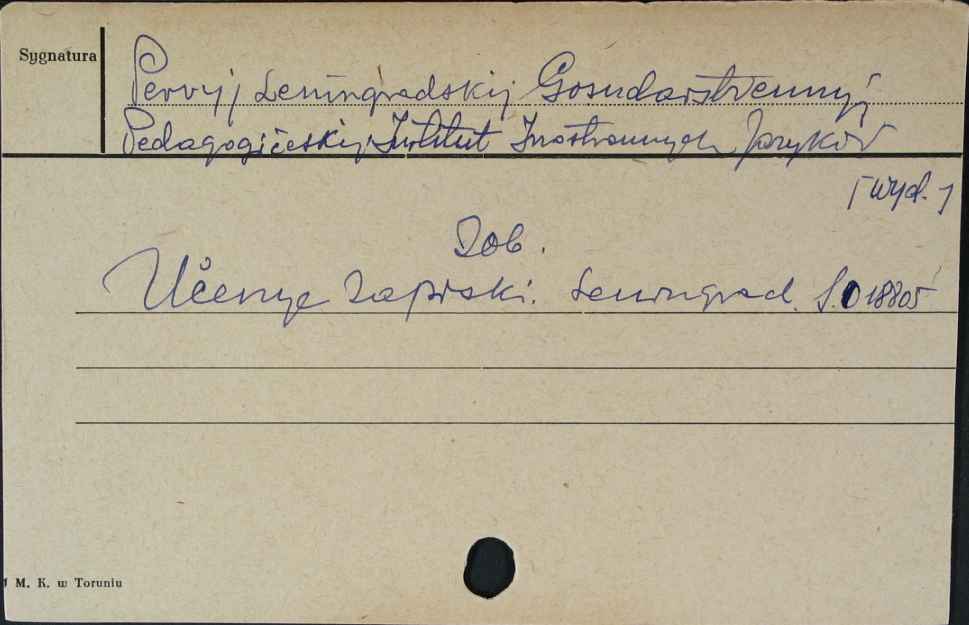 Sygnatura
Pervyj Leningradskij Gosudarstvennyj
Pedagogičeskij Institut Inostrannych Jazykov
[wyd.]
Zob.
Učenye Zapiski. Leningrad. S.018805
M. K. w Toruniu